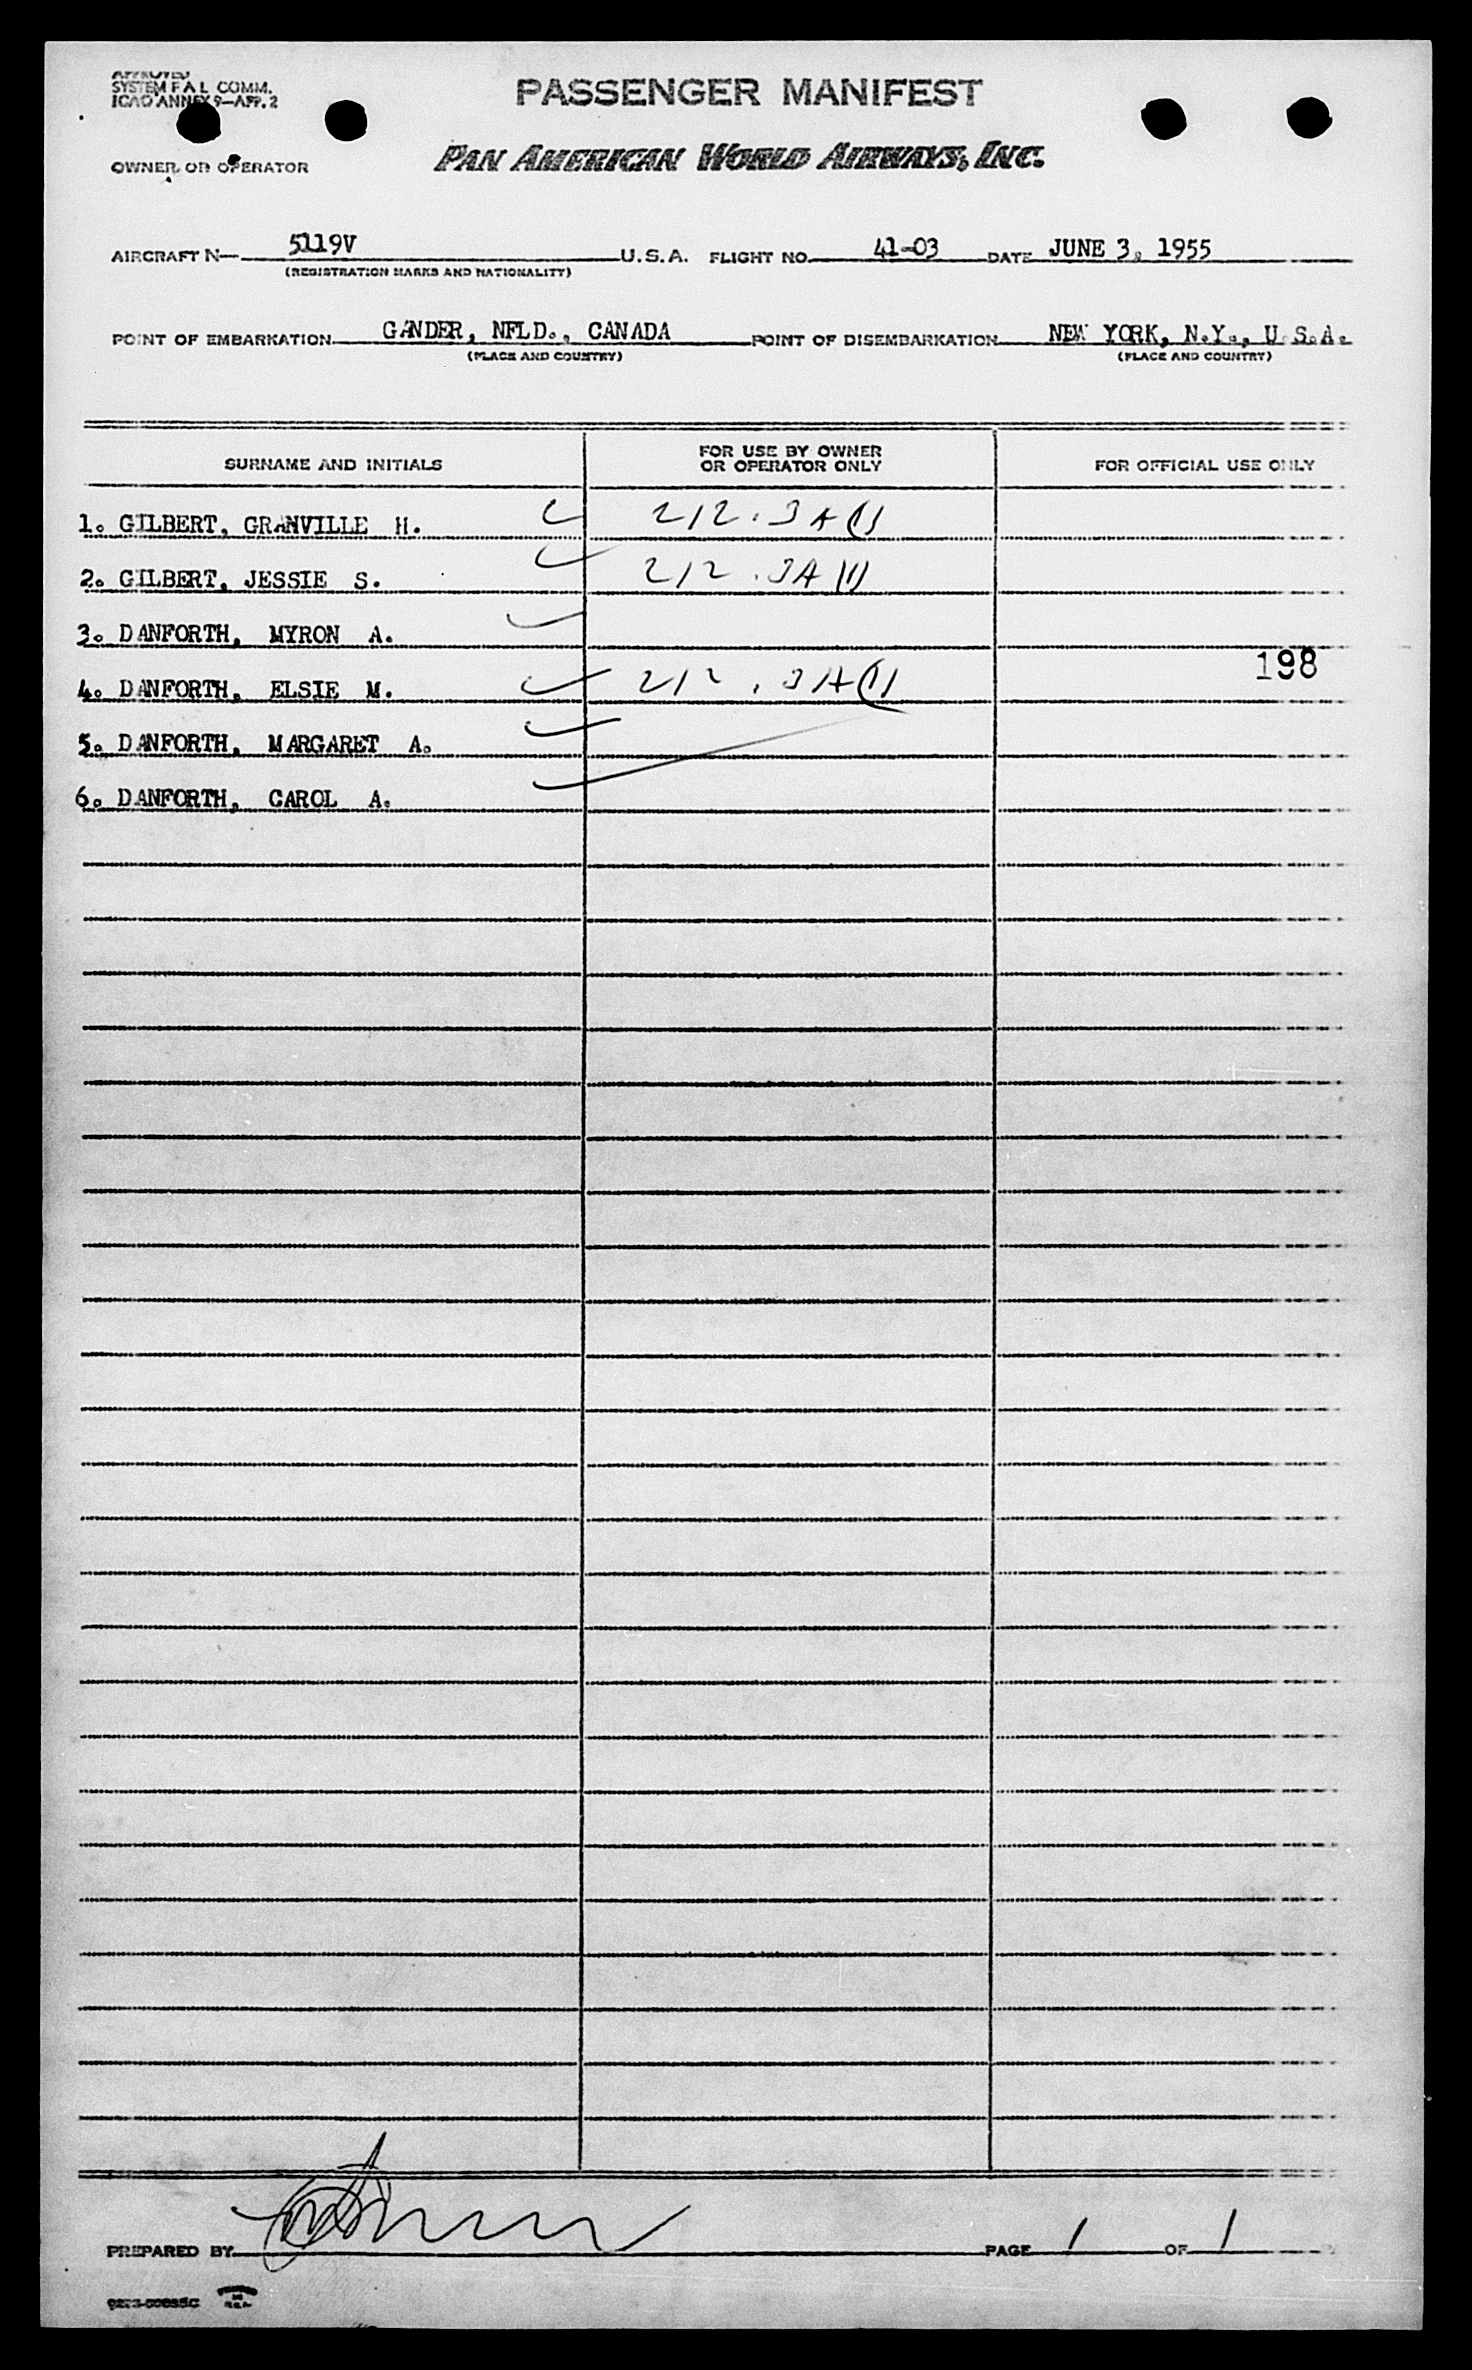 APPROVED
SYSTEM F A L COMM.
ICAO ANNEX 9—APP. 2
PASSENGER MANIFEST
OWNER OR OPERATOR PAN AMERICAN WORLD AIRWAYS, INC.
AIRCRAFT N— 5119V U.S.A. FLIGHT NO. 41-03 DATE JUNE 3, 1955
(REGISTRATION MARKS AND NATIONALITY)
POINT OF EMBARKATION GANDER, NFLD., CANADA POINT OF DISEMBARKATION NEW YORK, N.Y., U.S.A.
(PLACE AND COUNTRY) (PLACE AND COUNTRY)
SURNAME AND INITIALS FOR USE BY OWNER OR OPERATOR ONLY FOR OFFICIAL USE ONLY
1. GILBERT, GRANVILLE H. 212.3A(1)
2. GILBERT, JESSIE S. 212.3A(1)
3. DANFORTH, MYRON A.
198
4. DANFORTH, ELSIE M. 212.3A(1)
5. DANFORTH, MARGARET A.
6. DANFORTH, CAROL A.
PREPARED BY PAGE 1 OF 1